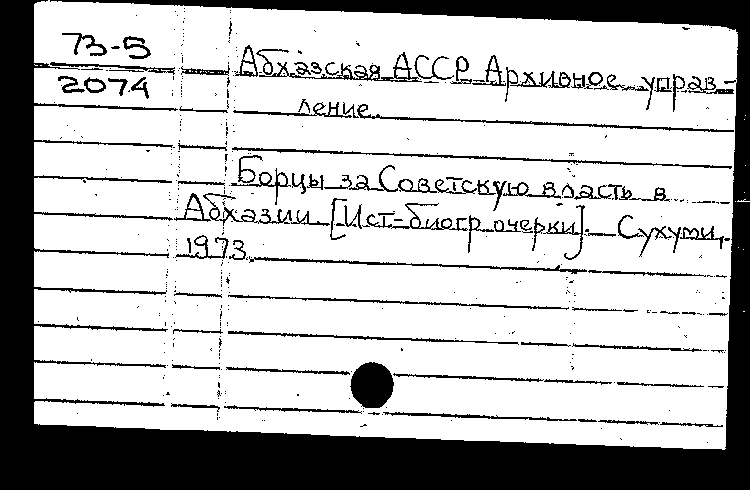 73-5
2074
Абхазская АССР Архивное управ-
ление.
Борцы за Советскую власть в
Абхазии [Ист-биогр очерки]. Сухуми,
1973.